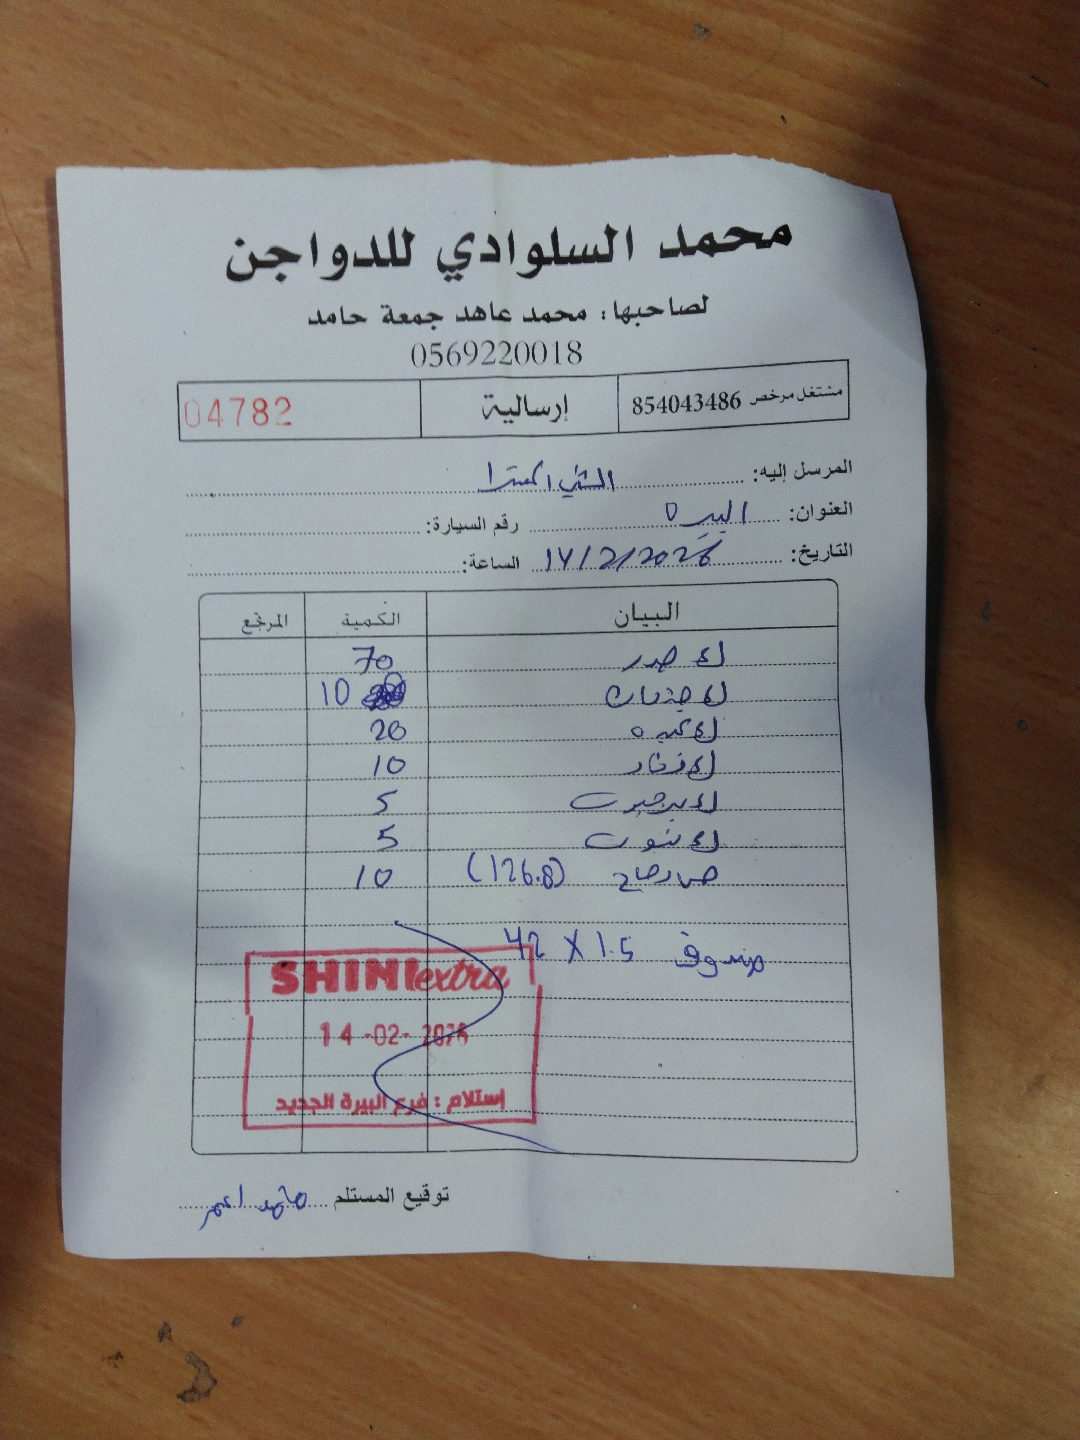 محمد السلوادي للدواجن
لصاحبها: محمد عاهد جمعة حامد
0569220018
مشتغل مرخص 854043486 إرسالية 04782
المرسل إليه: الشني اكسترا
العنوان: البيره رقم السيارة:
التاريخ: 14/2/2026 الساعة:
البيان الكمية المرتجع
كغ صدر 70
10
20
كغ فخاد 10
5
5
(126.8) 10
صندوق 1.5 X 42
SHINI extra
14-02-2026
إستلام: فرع البيرة الجديد
توقيع المستلم